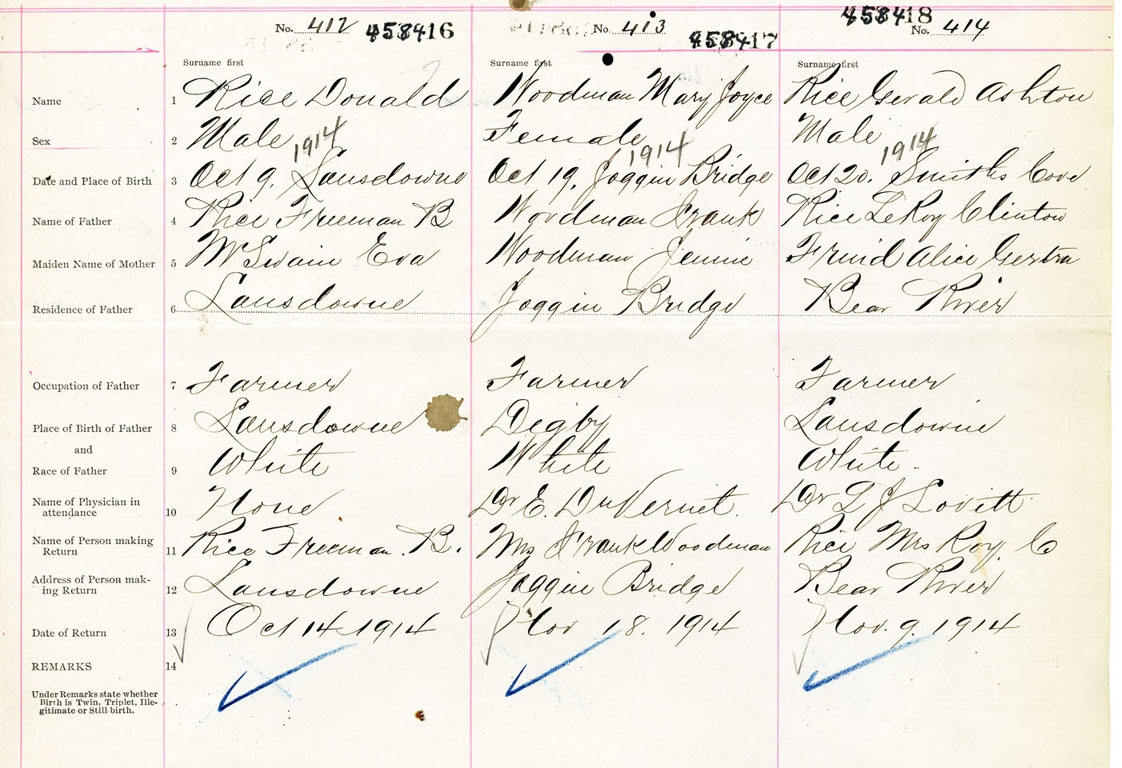 No. 412 458416 No. 413 458417 458418 No. 414
Surname first Surname first Surname first
Name 1 Rice Donald Woodman Mary Joyce Rice Gerald Ashton
Sex 2 Male Female Male
1914 1914 1914
Date and Place of Birth 3 Oct 9. Lansdowne Oct 19. Joggin Bridge Oct 20. Smiths Cove
Name of Father 4 Rice Freeman B Woodman Frank Rice LeRoy Clinton
Maiden Name of Mother 5 McSwain Eva Woodman Jennie Alice
Residence of Father 6 Lansdowne Joggin Bridge Bear River
Occupation of Father 7 Farmer Farmer Farmer
Place of Birth of Father 8 Lansdowne Digby Lansdowne
and
Race of Father 9 White White White.
Name of Physician in
attendance 10 None Dr E. DuVernet. Dr L J Lovitt
Name of Person making
Return 11 Rice Freeman. B. Mrs Frank Woodman Rice Mrs Roy. C
Address of Person mak-
ing Return 12 Lansdowne Joggin Bridge Bear River
Date of Return 13 Oct 14 1914 Nov 18. 1914 Nov. 9. 1914
REMARKS 14
Under Remarks state whether
Birth is Twin, Triplet, Ille-
gitimate or Still-birth.